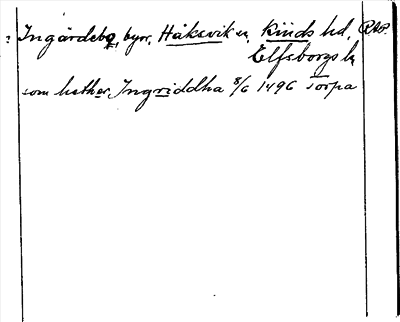 : Ingärdebo, byn, Håksvik sn, Kinds hd, RAP.
Elfsborgs län
som hether Ingriddha 8/6 1496 Torpa